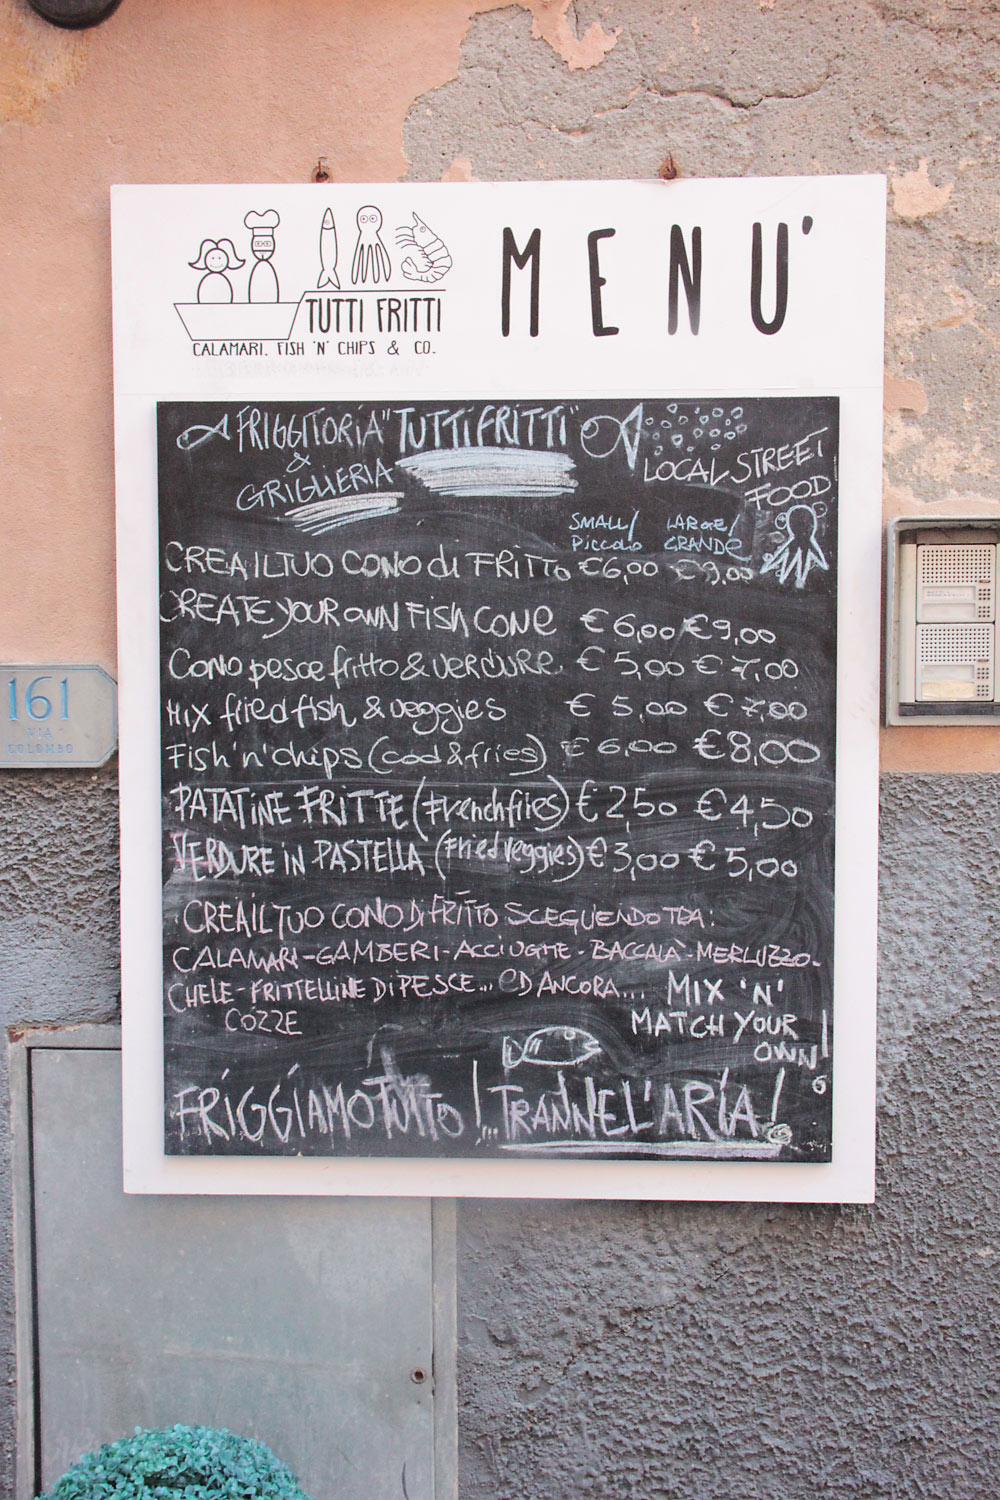 TUTTI FRITTI
CALAMARI, FISH 'N' CHIPS & CO.
MENU'
FRIGGITORIA "TUTTI FRITTI"
&
GRIGLIERIA
LOCAL STREET
FOOD
SMALL/ LARGE/
Piccolo GRANDE
CREA IL TUO CONO di FRITTO €6,00 €9,00
CREATE YOUR OWN FISH CONE € 6,00 € 9,00
Cono pesce fritto & verdure € 5,00 € 7,00
Mix fried fish & veggies € 5,00 € 7,00
Fish 'n' chips (cod & fries) € 6,00 € 8,00
PATATINE FRITTE (frenchfries) € 2,50 € 4,50
VERDURE in PASTELLA (fried veggies) € 3,00 € 5,00
CREA IL TUO CONO Di FRITTO SCEGLIENDO TRA:
CALAMARI - GAMBERI - ACCIUGHE - BACCALÀ - MERLUZZO -
CHELE - FRITTELLINE Di PESCE... ED ANCORA... MIX 'N'
COZZE MATCH YOUR
OWN!
FRIGGIAMO TUTTO!... TRANNE L'ARIA!
161
VIA
COLOMBO